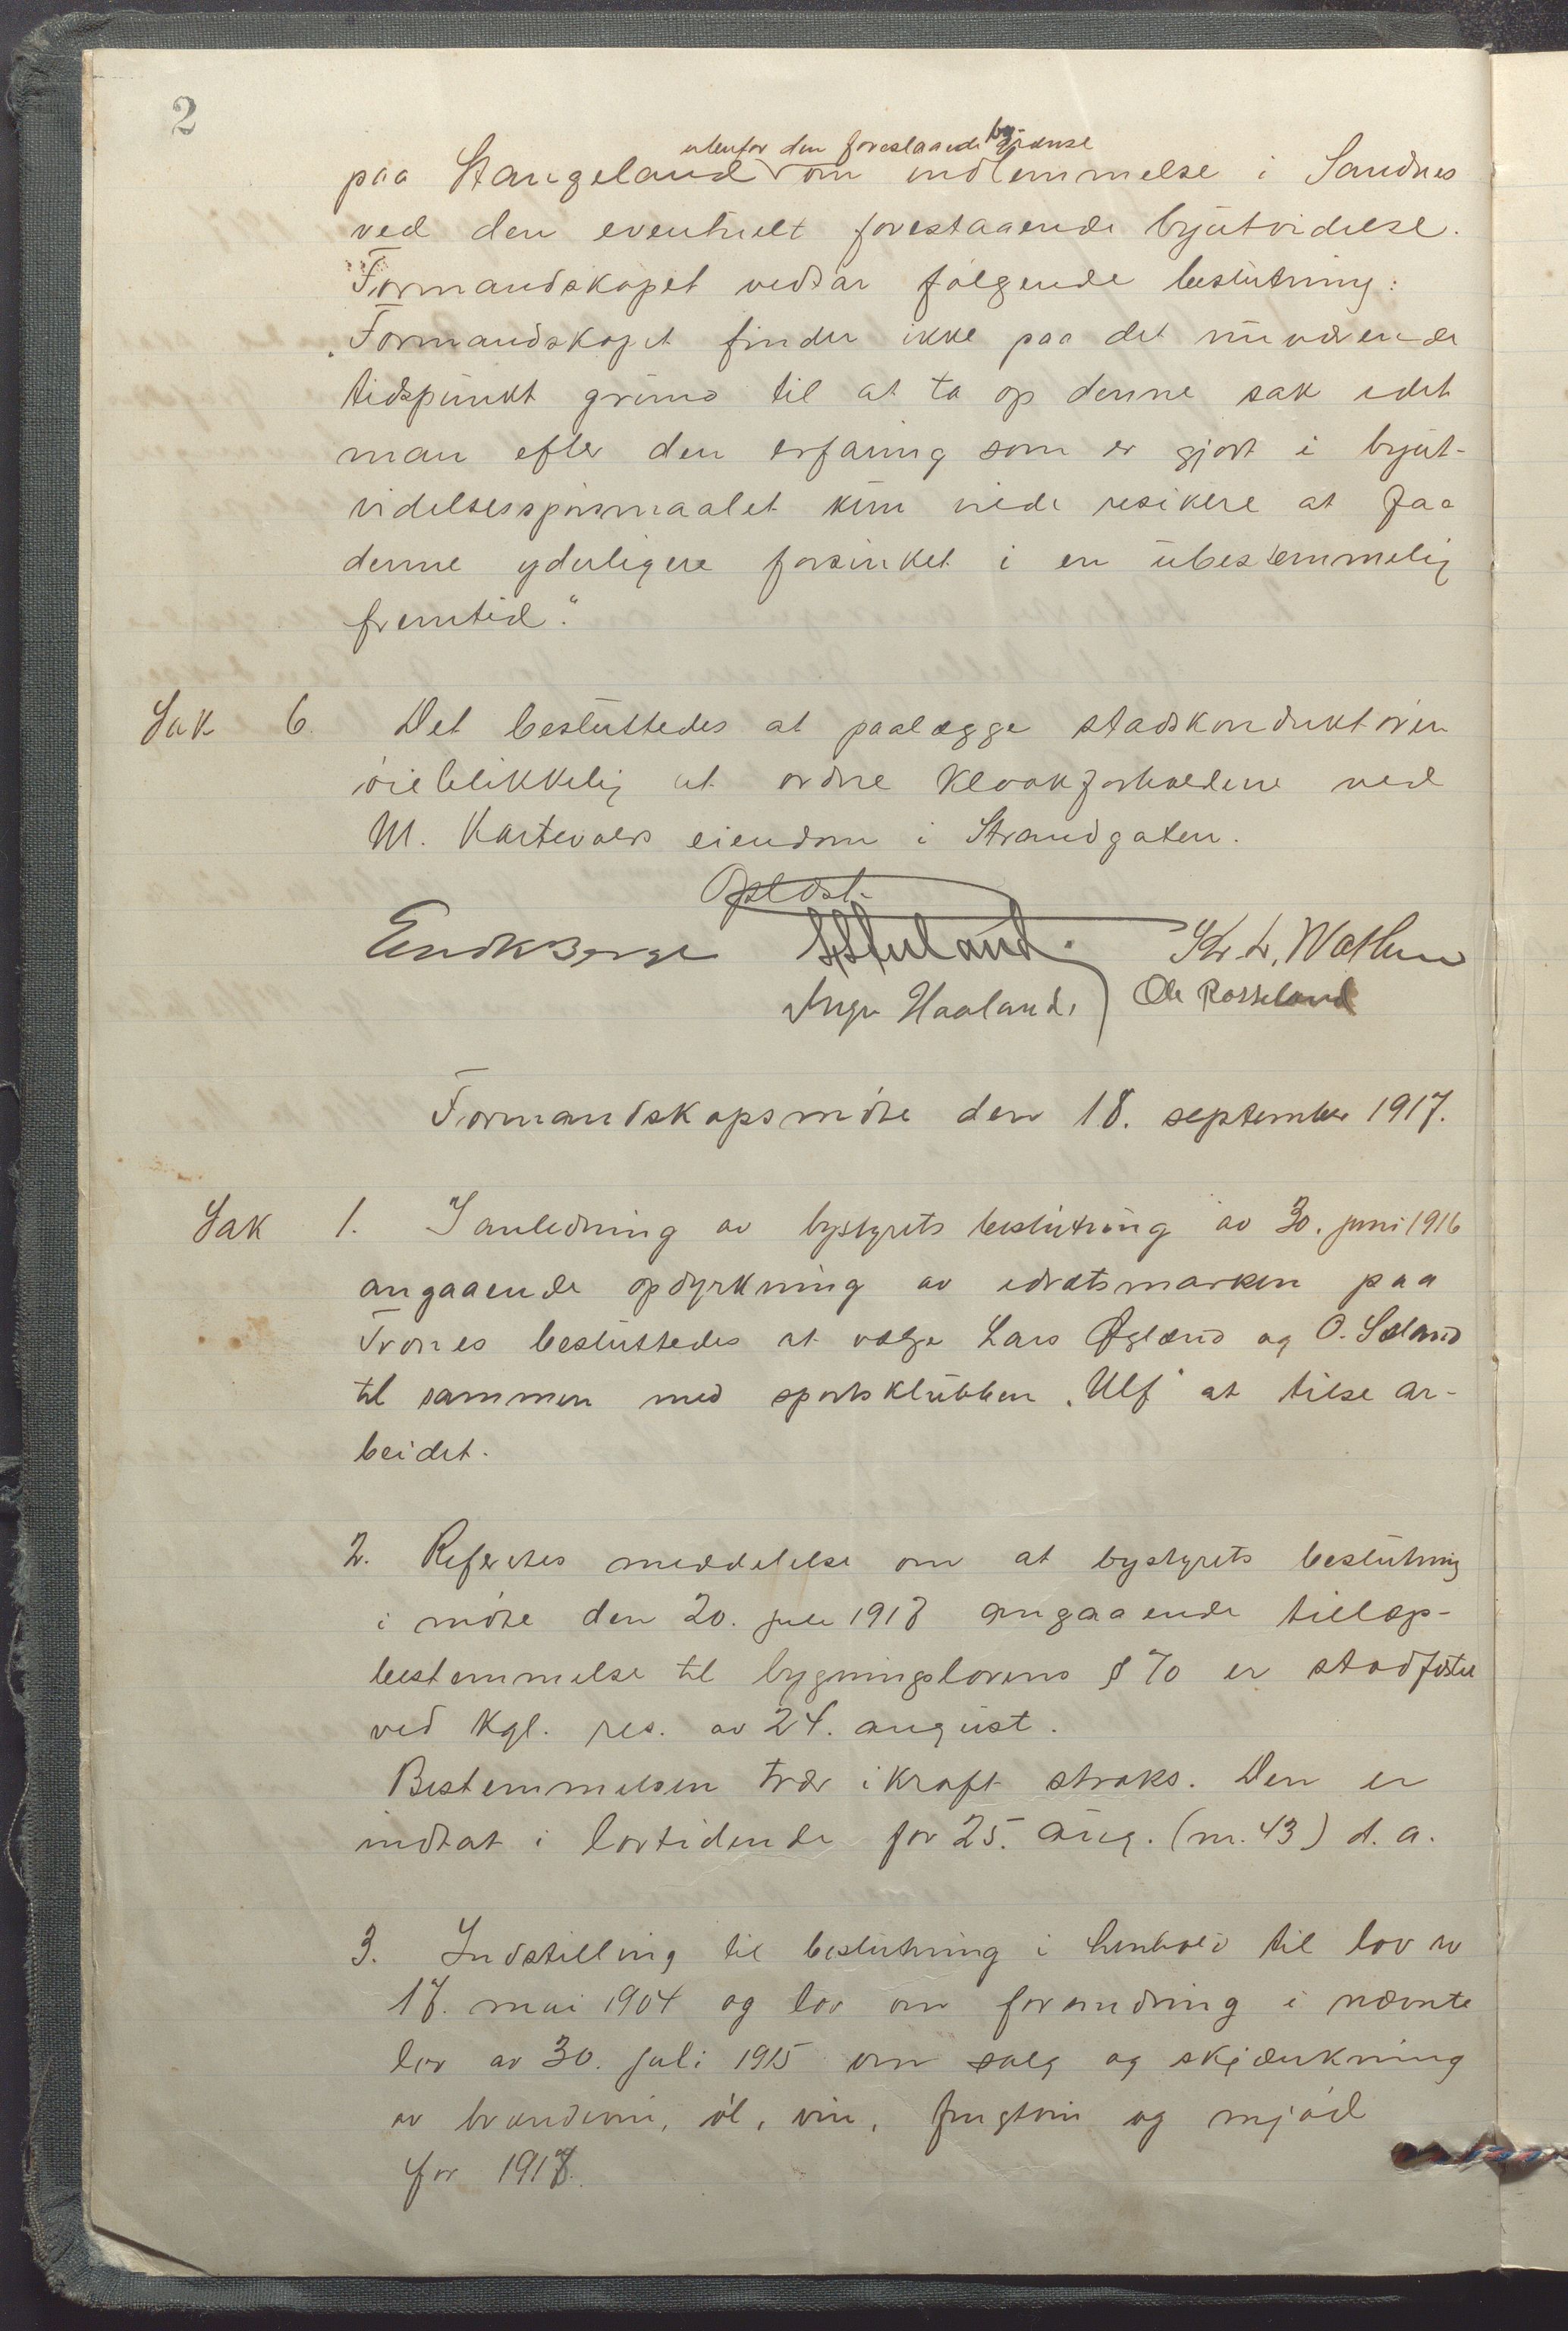 2
utenfor den foreslaaede bygrænse
paa Stangeland om indlemmelse i Sandnes
ved den eventuelt forestaaende byutvidelse.
Formandskapet vedtar følgende beslutning:
„Formandskapet finder ikke paa det nuværende
tidspunkt grund til at ta op denne sak idet
man efter den erfaring som er gjort i byut-
videlsesspørsmaalet kun vilde resikere at faa
denne yderligere forsinket i en ubestemmelig
fremtid."
Sak 6. Det besluttedes at paalægge stadskonduktøren
øieblikkelig at ordne kloakforholdene ved
M. Kartevolds eiendom i Strandgaten.
Oplæst.
Endk Berge Kr. L. Wathne
Inga Haaland. Ole Rosseland
Formandskapsmöte den 18. september 1917.
Sak 1. I anledning av bystyrets beslutning av 30. juni 1916
angaaende opdyrkning av idrætsmarken paa
Trones besluttedes at vælge Lars Øglænd og O. Sæland
til sammen med sportsklubben „Ulf" at tilse ar-
beidet.
2. Refertes meddelelse om at bystyrets beslutning
i möte den 20. juli 1917 angaaende tillægs-
bestemmelse til bygningslovens § 70 er stadfæstet
ved kgl. res. av 24. august.
Bestemmelsen trær i kraft straks. Den er
indtat i lovtidende for 25. aug. (nr. 43) d. a.
3. Indstilling til beslutning i henhold til lov av
17. mai 1904 og lov om forandring i nævnte
lov av 30. juli 1915 om salg og skjænkning
av brændevin, øl, vin, frugtvin og mjød
for 1918.